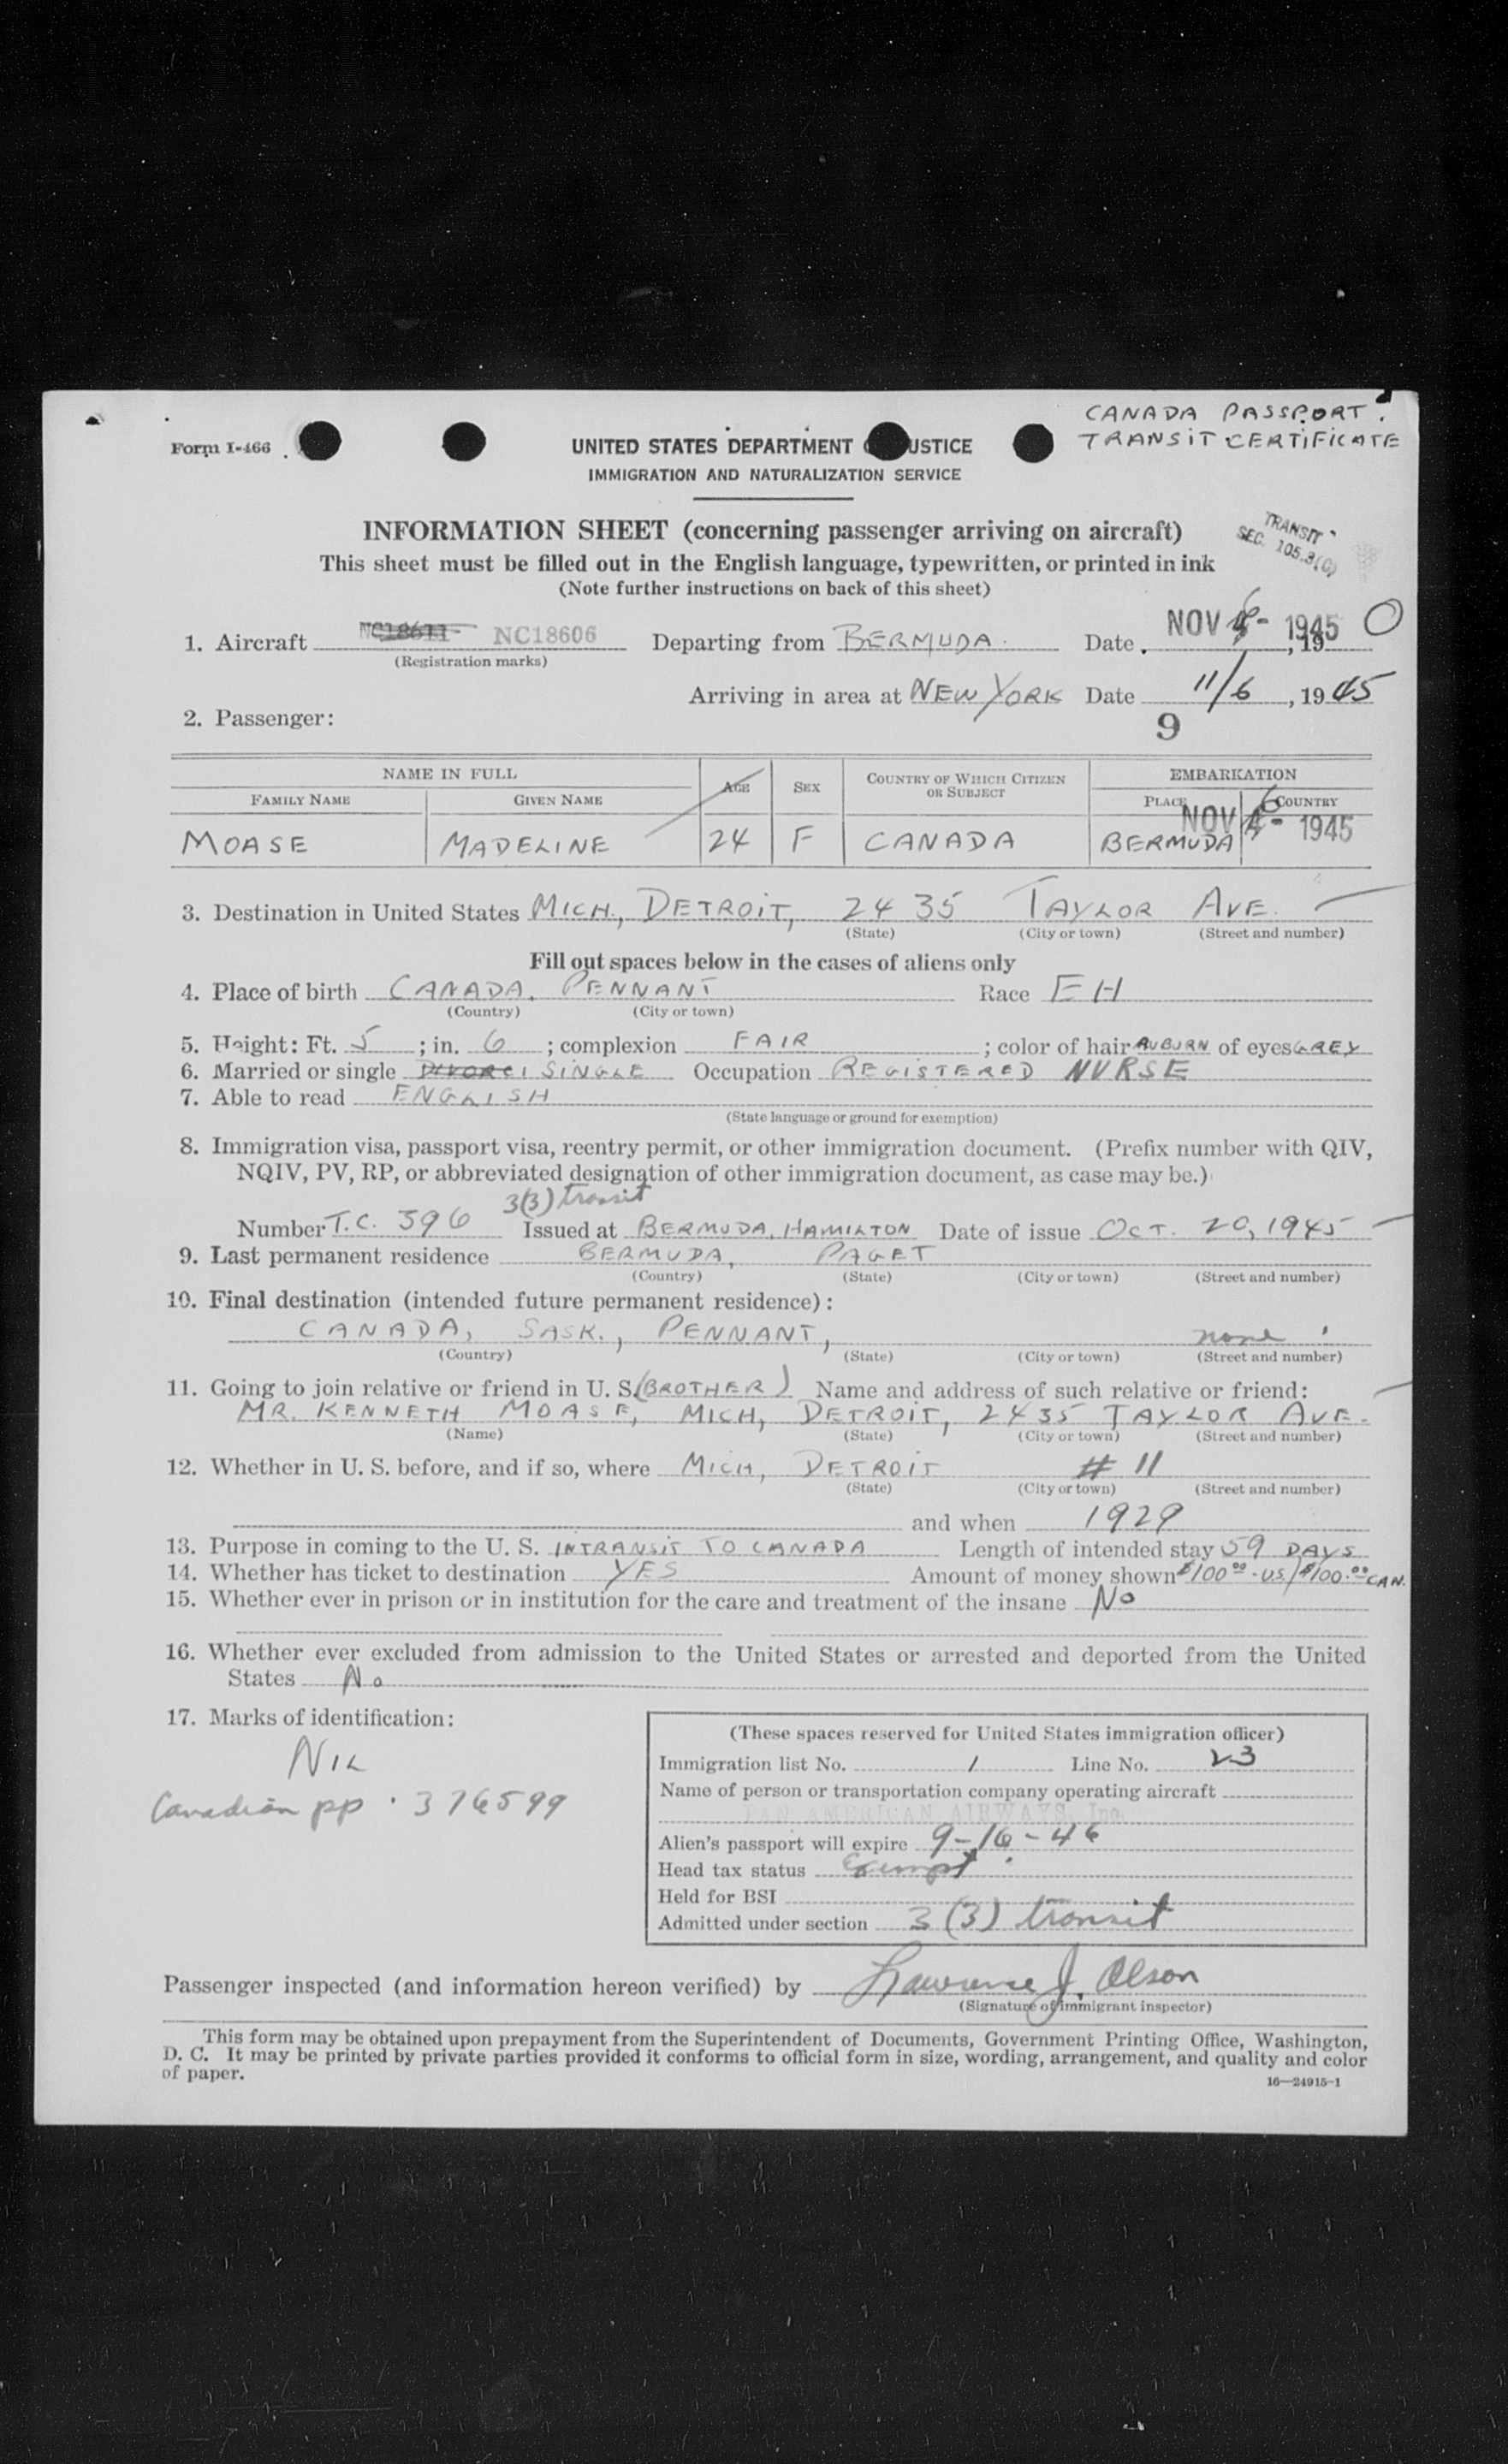 CANADA PASSPORT.
TRANSIT CERTIFICATE
Form I-466
UNITED STATES DEPARTMENT USTICE
IMMIGRATION AND NATURALIZATION SERVICE
INFORMATION SHEET (concerning passenger arriving on aircraft)
TRANSIT
SEC. 105.3(C)
This sheet must be filled out in the English language, typewritten, or printed in ink
(Note further instructions on back of this sheet)
1. Aircraft NC18611 NC18606 Departing from BERMUDA. Date NOV 6 - 1945, 19
(Registration marks)
Arriving in area at NEW YORK Date 11/6, 1945
2. Passenger:
9
NAME IN FULL AGE SEX COUNTRY OF WHICH CITIZEN OR SUBJECT EMBARKATION
FAMILY NAME GIVEN NAME PLACE COUNTRY
NOV 6 - 1945
MOASE MADELINE 24 F CANADA BERMUDA
3. Destination in United States MICH., DETROIT, 2435 TAYLOR AVE.
(State) (City or town) (Street and number)
Fill out spaces below in the cases of aliens only
4. Place of birth CANADA, PENNANT Race EH
(Country) (City or town)
5. Height: Ft. 5; in. 6; complexion FAIR; color of hair AUBURN of eyes GREY
6. Married or single SINGLE Occupation REGISTERED NURSE
7. Able to read ENGLISH
(State language or ground for exemption)
8. Immigration visa, passport visa, reentry permit, or other immigration document. (Prefix number with QIV,
NQIV, PV, RP, or abbreviated designation of other immigration document, as case may be.)
3(3) transit
Number T.C. 396 Issued at BERMUDA, HAMILTON Date of issue OCT. 20, 1945
9. Last permanent residence BERMUDA, PAGET
(Country) (State) (City or town) (Street and number)
10. Final destination (intended future permanent residence):
CANADA, SASK., PENNANT, none
(Country) (State) (City or town) (Street and number)
11. Going to join relative or friend in U. S. (BROTHER) Name and address of such relative or friend:
MR. KENNETH MOASE, MICH, DETROIT, 2435 TAYLOR AVE.
(Name) (State) (City or town) (Street and number)
12. Whether in U. S. before, and if so, where MICH, DETROIT # 11
(State) (City or town) (Street and number)
and when 1929
13. Purpose in coming to the U. S. INTRANSIT TO CANADA Length of intended stay 59 DAYS
14. Whether has ticket to destination YES Amount of money shown $100.00 - US/$100.00 CAN.
15. Whether ever in prison or in institution for the care and treatment of the insane No
16. Whether ever excluded from admission to the United States or arrested and deported from the United
States No
17. Marks of identification:
NIL
Canadian pp. 376599
(These spaces reserved for United States immigration officer)
Immigration list No. 1 Line No. 23
Name of person or transportation company operating aircraft
PAN AMERICAN AIRWAYS, Inc.
Alien's passport will expire 9-16-46
Head tax status Exempt
Held for BSI
Admitted under section 3(3) transit
Passenger inspected (and information hereon verified) by Lawrence J. Olson
(Signature of immigrant inspector)
This form may be obtained upon prepayment from the Superintendent of Documents, Government Printing Office, Washington,
D. C. It may be printed by private parties provided it conforms to official form in size, wording, arrangement, and quality and color
of paper.
16—24915-1